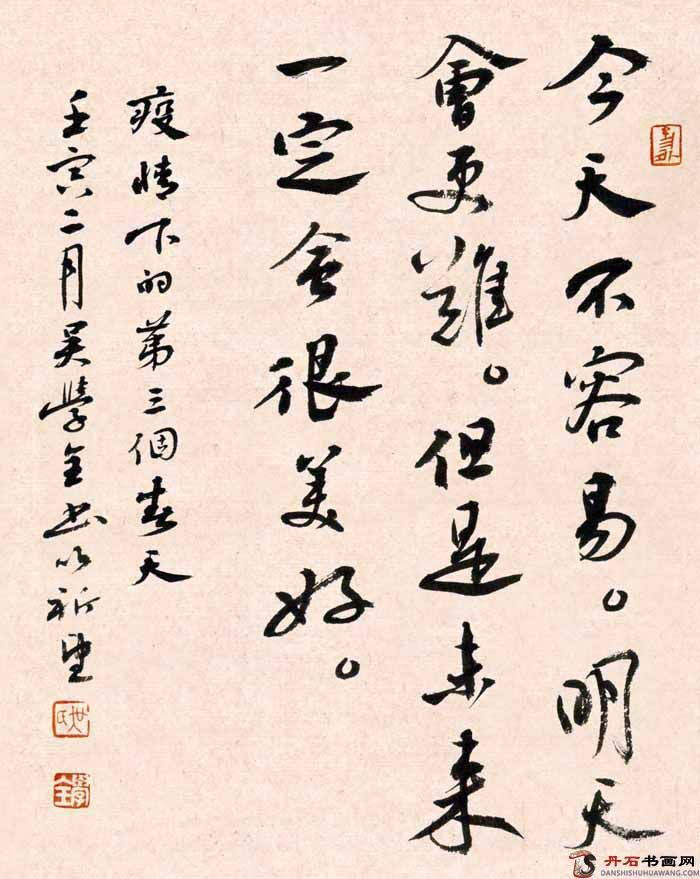 今天不容易。明天
會更難。但是未來
一定會很美好。
疫情下的第三個春天
壬寅二月吴學金书以祈望
丹石书画网
DANSHISHUHUAWANG.COM